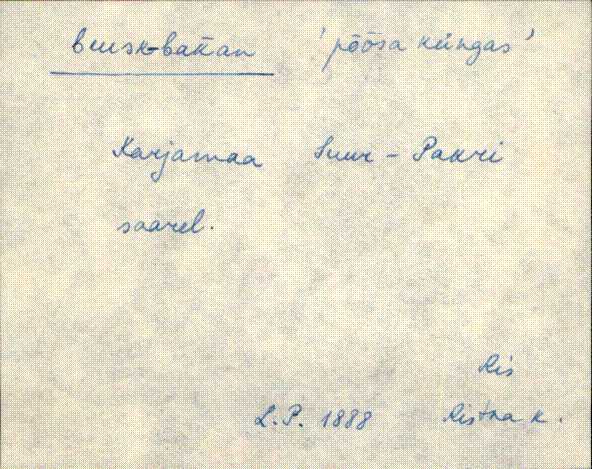 busk-bakan 'põõsa küngas'
Karjamaa Suur-Pakri
saarel.
Ris
L.P. 1888 Ristna k.